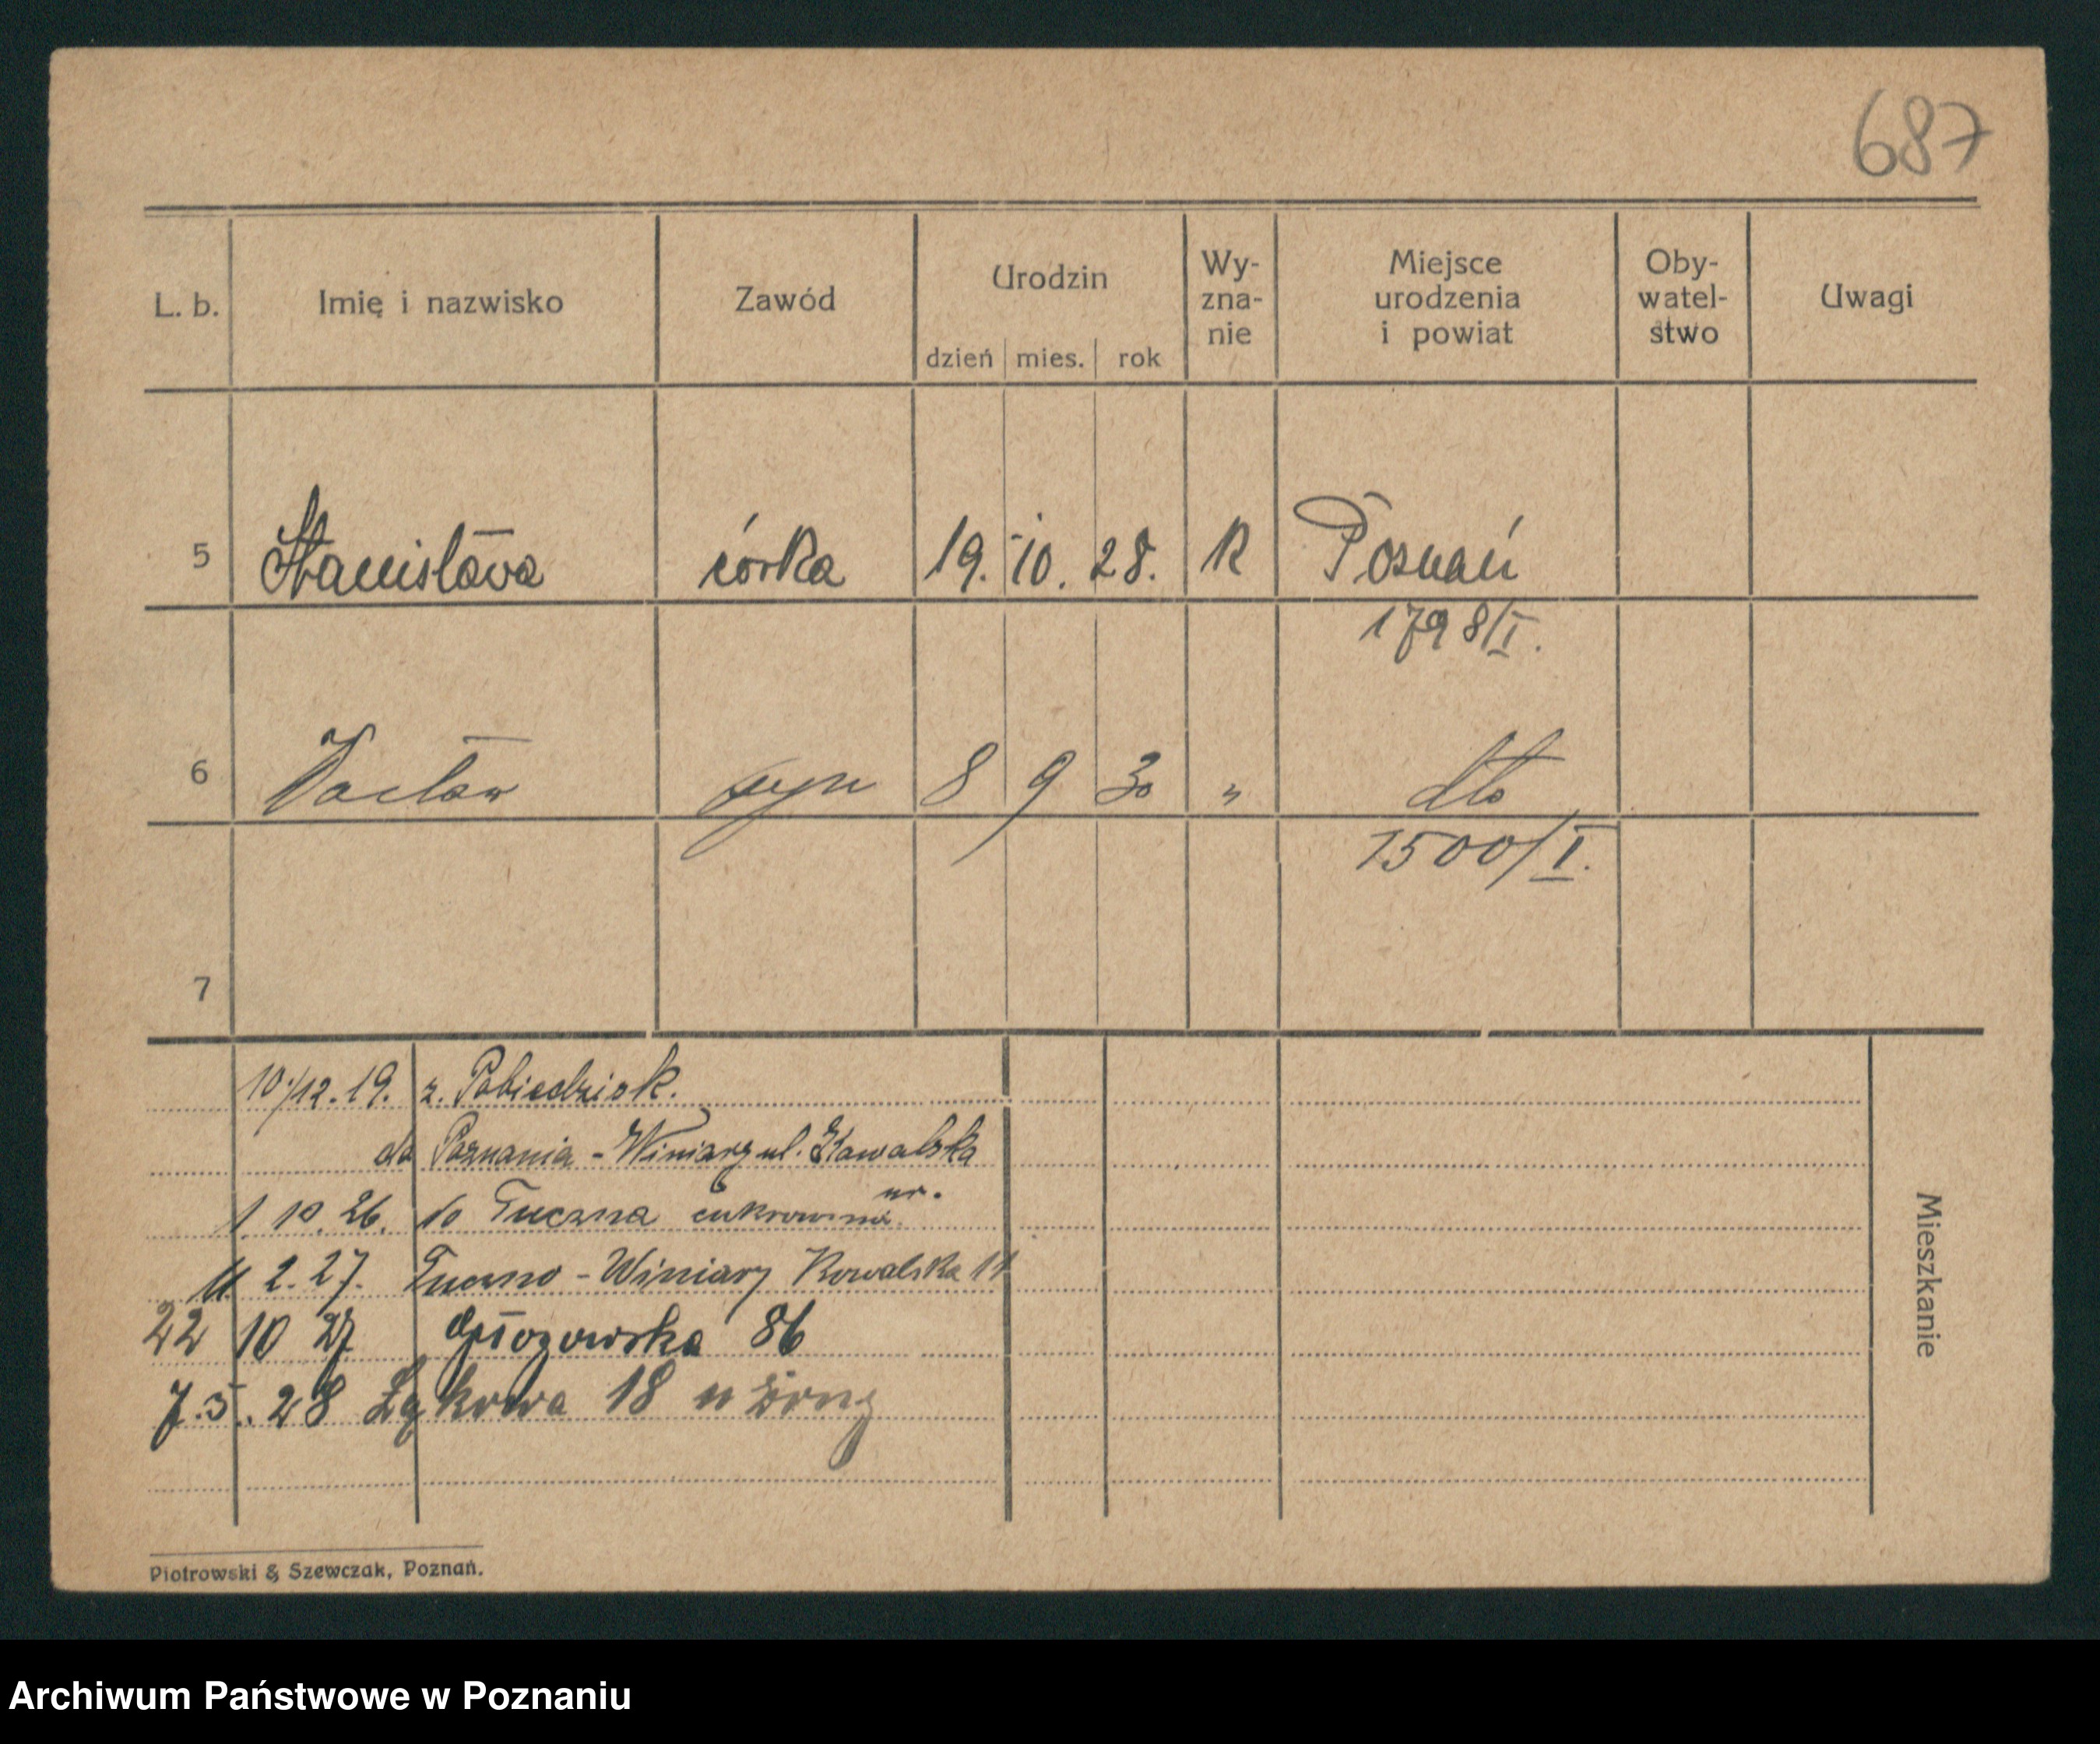 687
L. b. Imię i nazwisko Zawód Urodzin dzień mies. rok Wy-zna-nie Miejsce urodzenia i powiat Oby-watel-stwo Uwagi
5 Stanisława córka 19. 10. 28. R Poznań
1798/I.
6 Wacław syn 8 9 30 " dto
1500/I.
7
10./12.19. z. Pobiedzisk.
do Poznania - Winiary ul. Kowalska
nr.
1 10. 26. do Tuczna cukrownia
11 2. 27. Tuczno - Winiary Kowalska 11
22 10 27 Głogowska 86
7.5.28 Łąkowa 18 u żony
Mieszkanie
Piotrowski & Szewczak, Poznań.
Archiwum Państwowe w Poznaniu